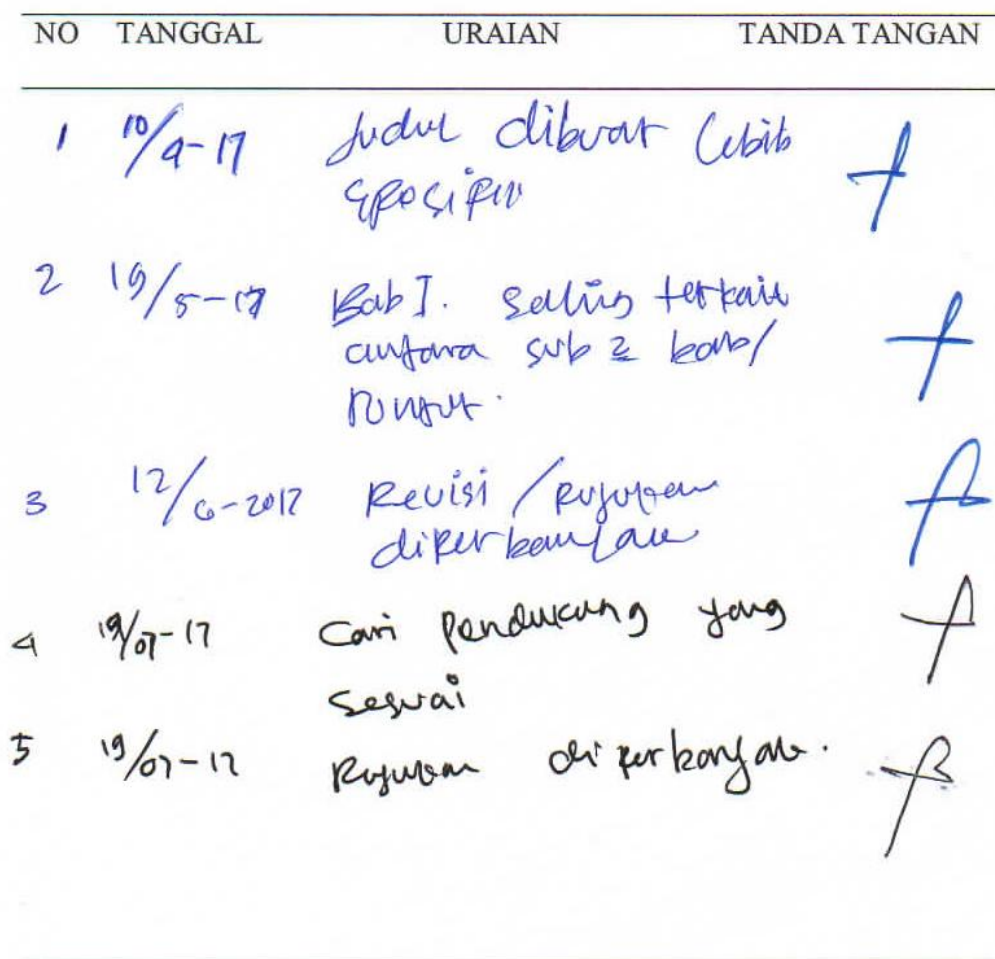 NO TANGGAL URAIAN TANDA TANGAN
1 10/4-17 Judul dibuat lebih
spesifik
2 19/5-17 Bab I. saling terkait
antara sub 2 bab/
runtut.
3 12/6-2017 Revisi / Rujukan
diperbanyak
4 19/07-17 Cari pendukung yang
sesuai
5 19/07-17 Rujukan diperbanyak.